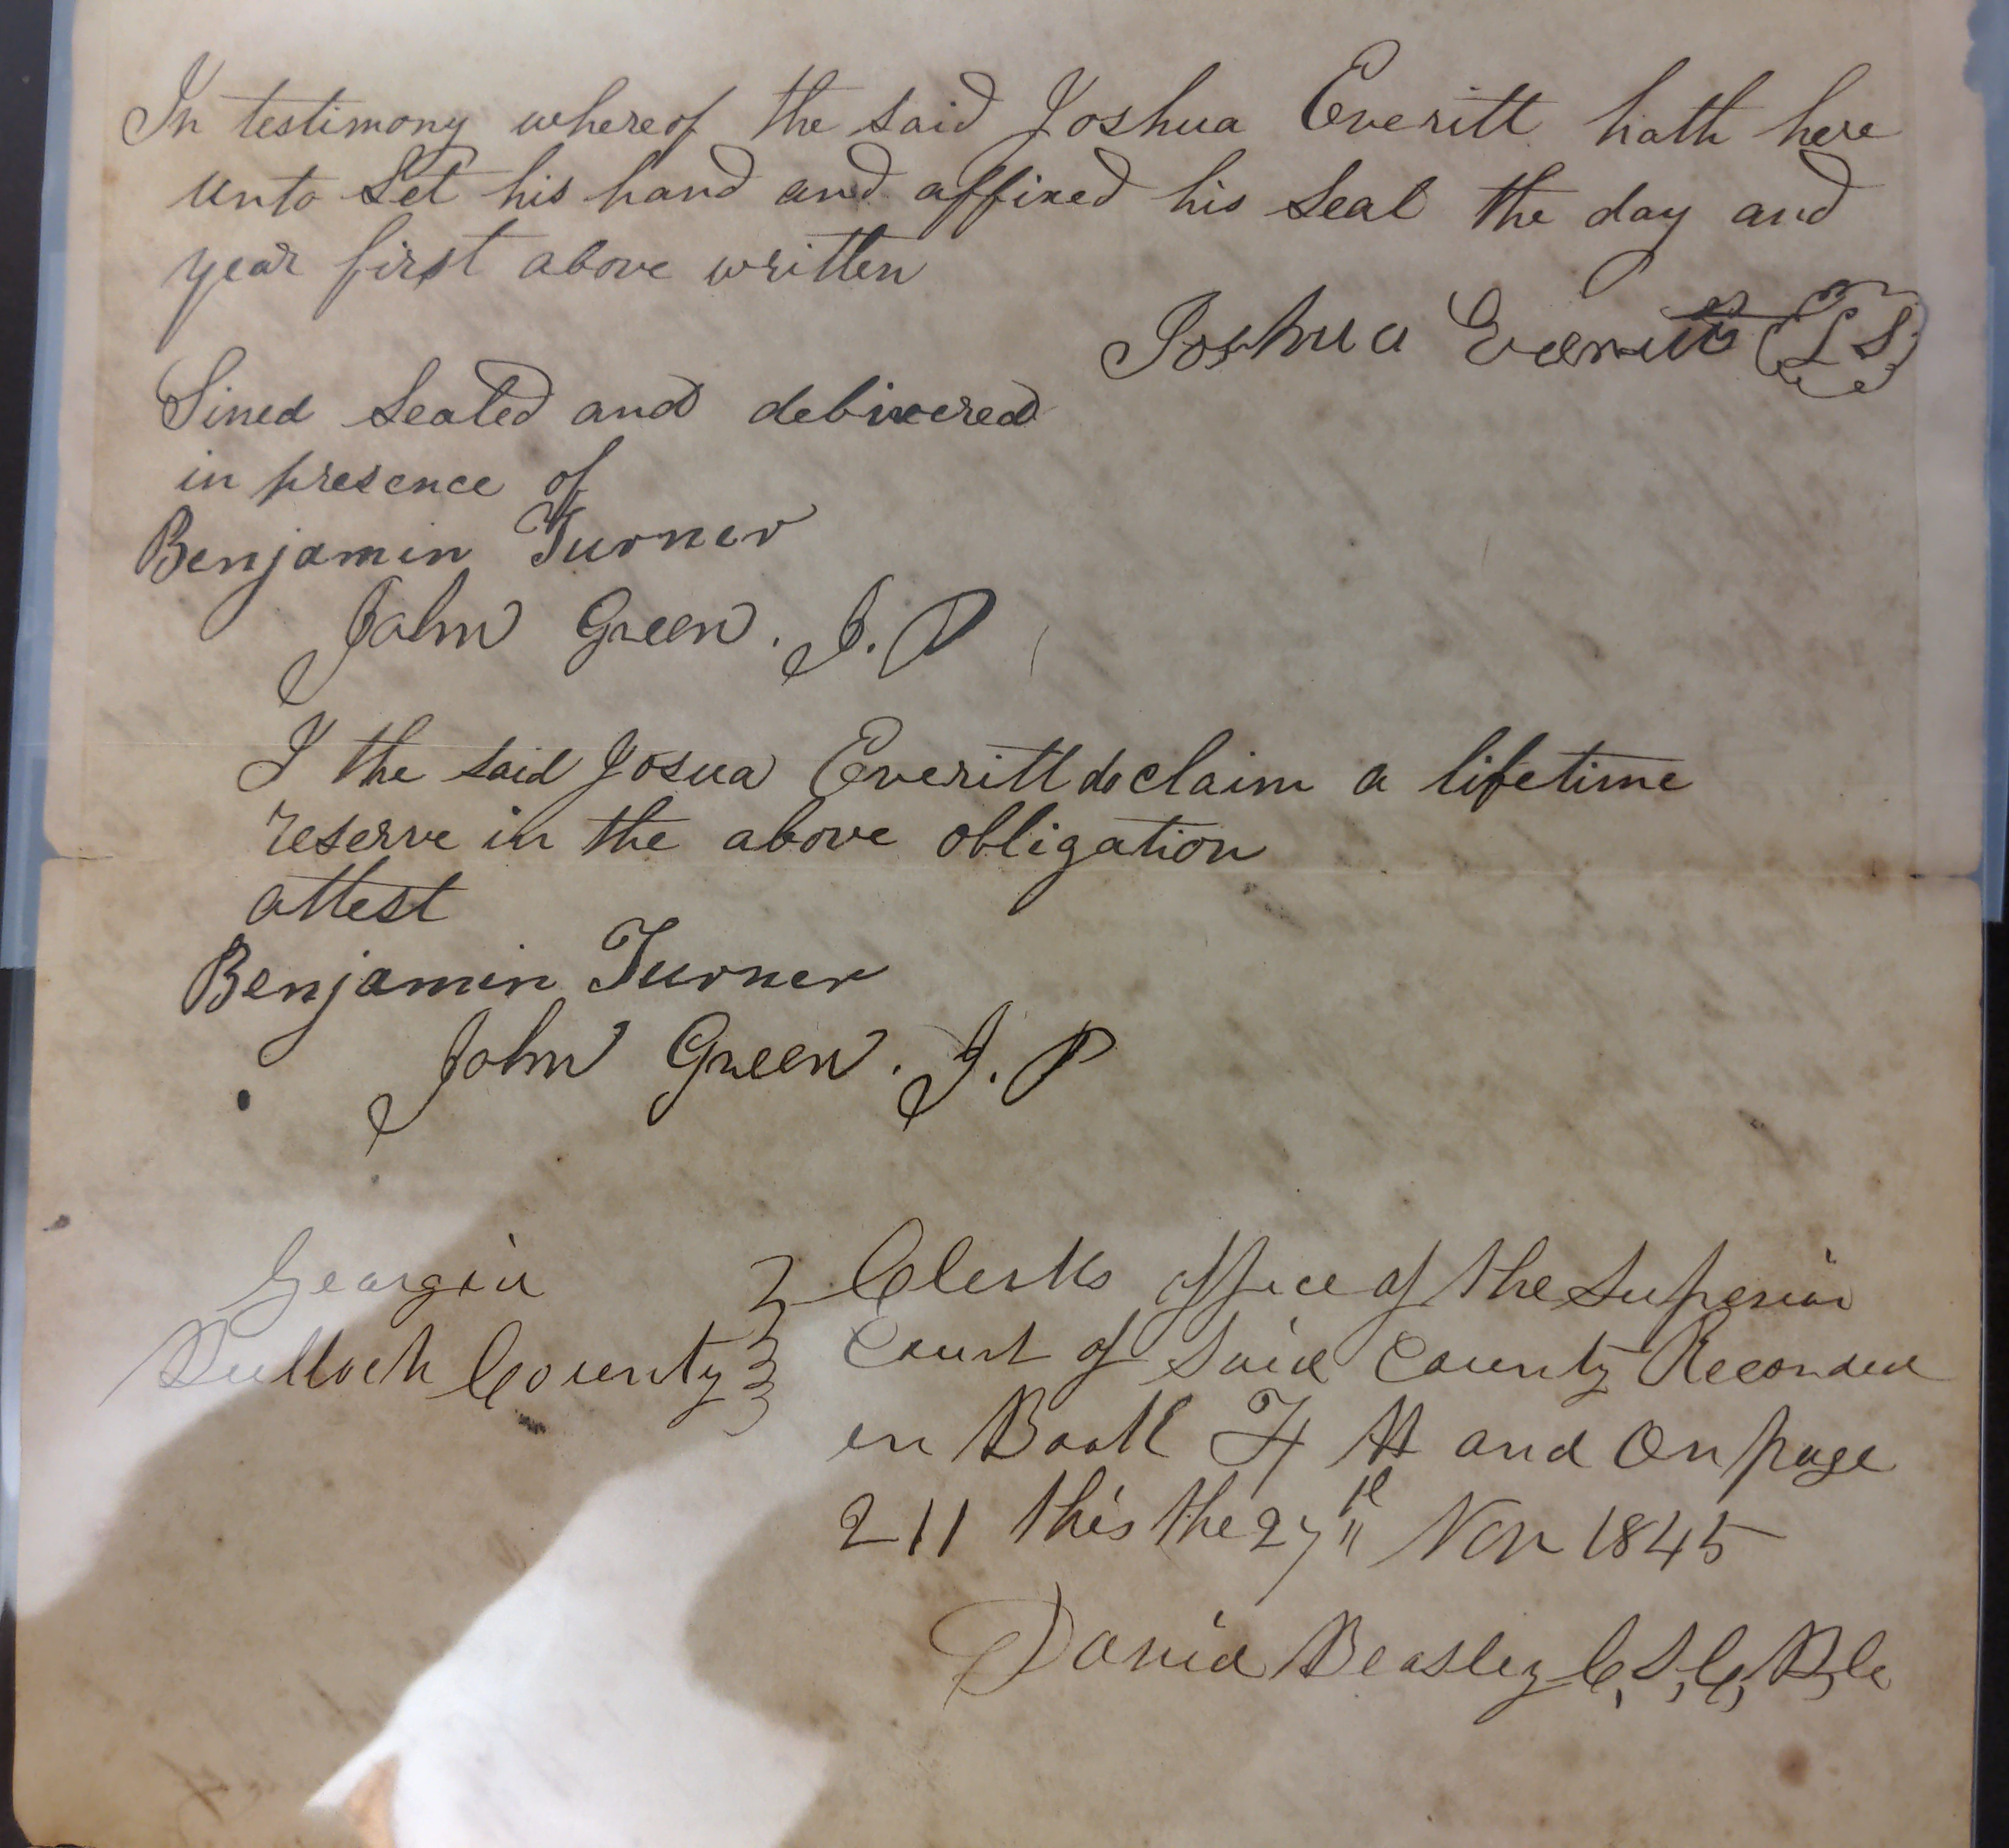 In testimony whereof the said Joshua Everitt hath here
unto Set his hand and affixed his Seal the day and
year first above written
Joshua Everitt (L S)
Sined Sealed and delivered
in presence of
Benjamin Turner
John Green . J. P
I the said Josua Everitt do claim a lifetime
reserve in the above obligation
attest
Benjamin Turner
John Green . J. P
Georgia
Bulloch County
Clerks office of the Superior
Court of Said County Recorded
in Book and On page
211 this the 27th Nov 1845
David Beasley C, S, C, B, C